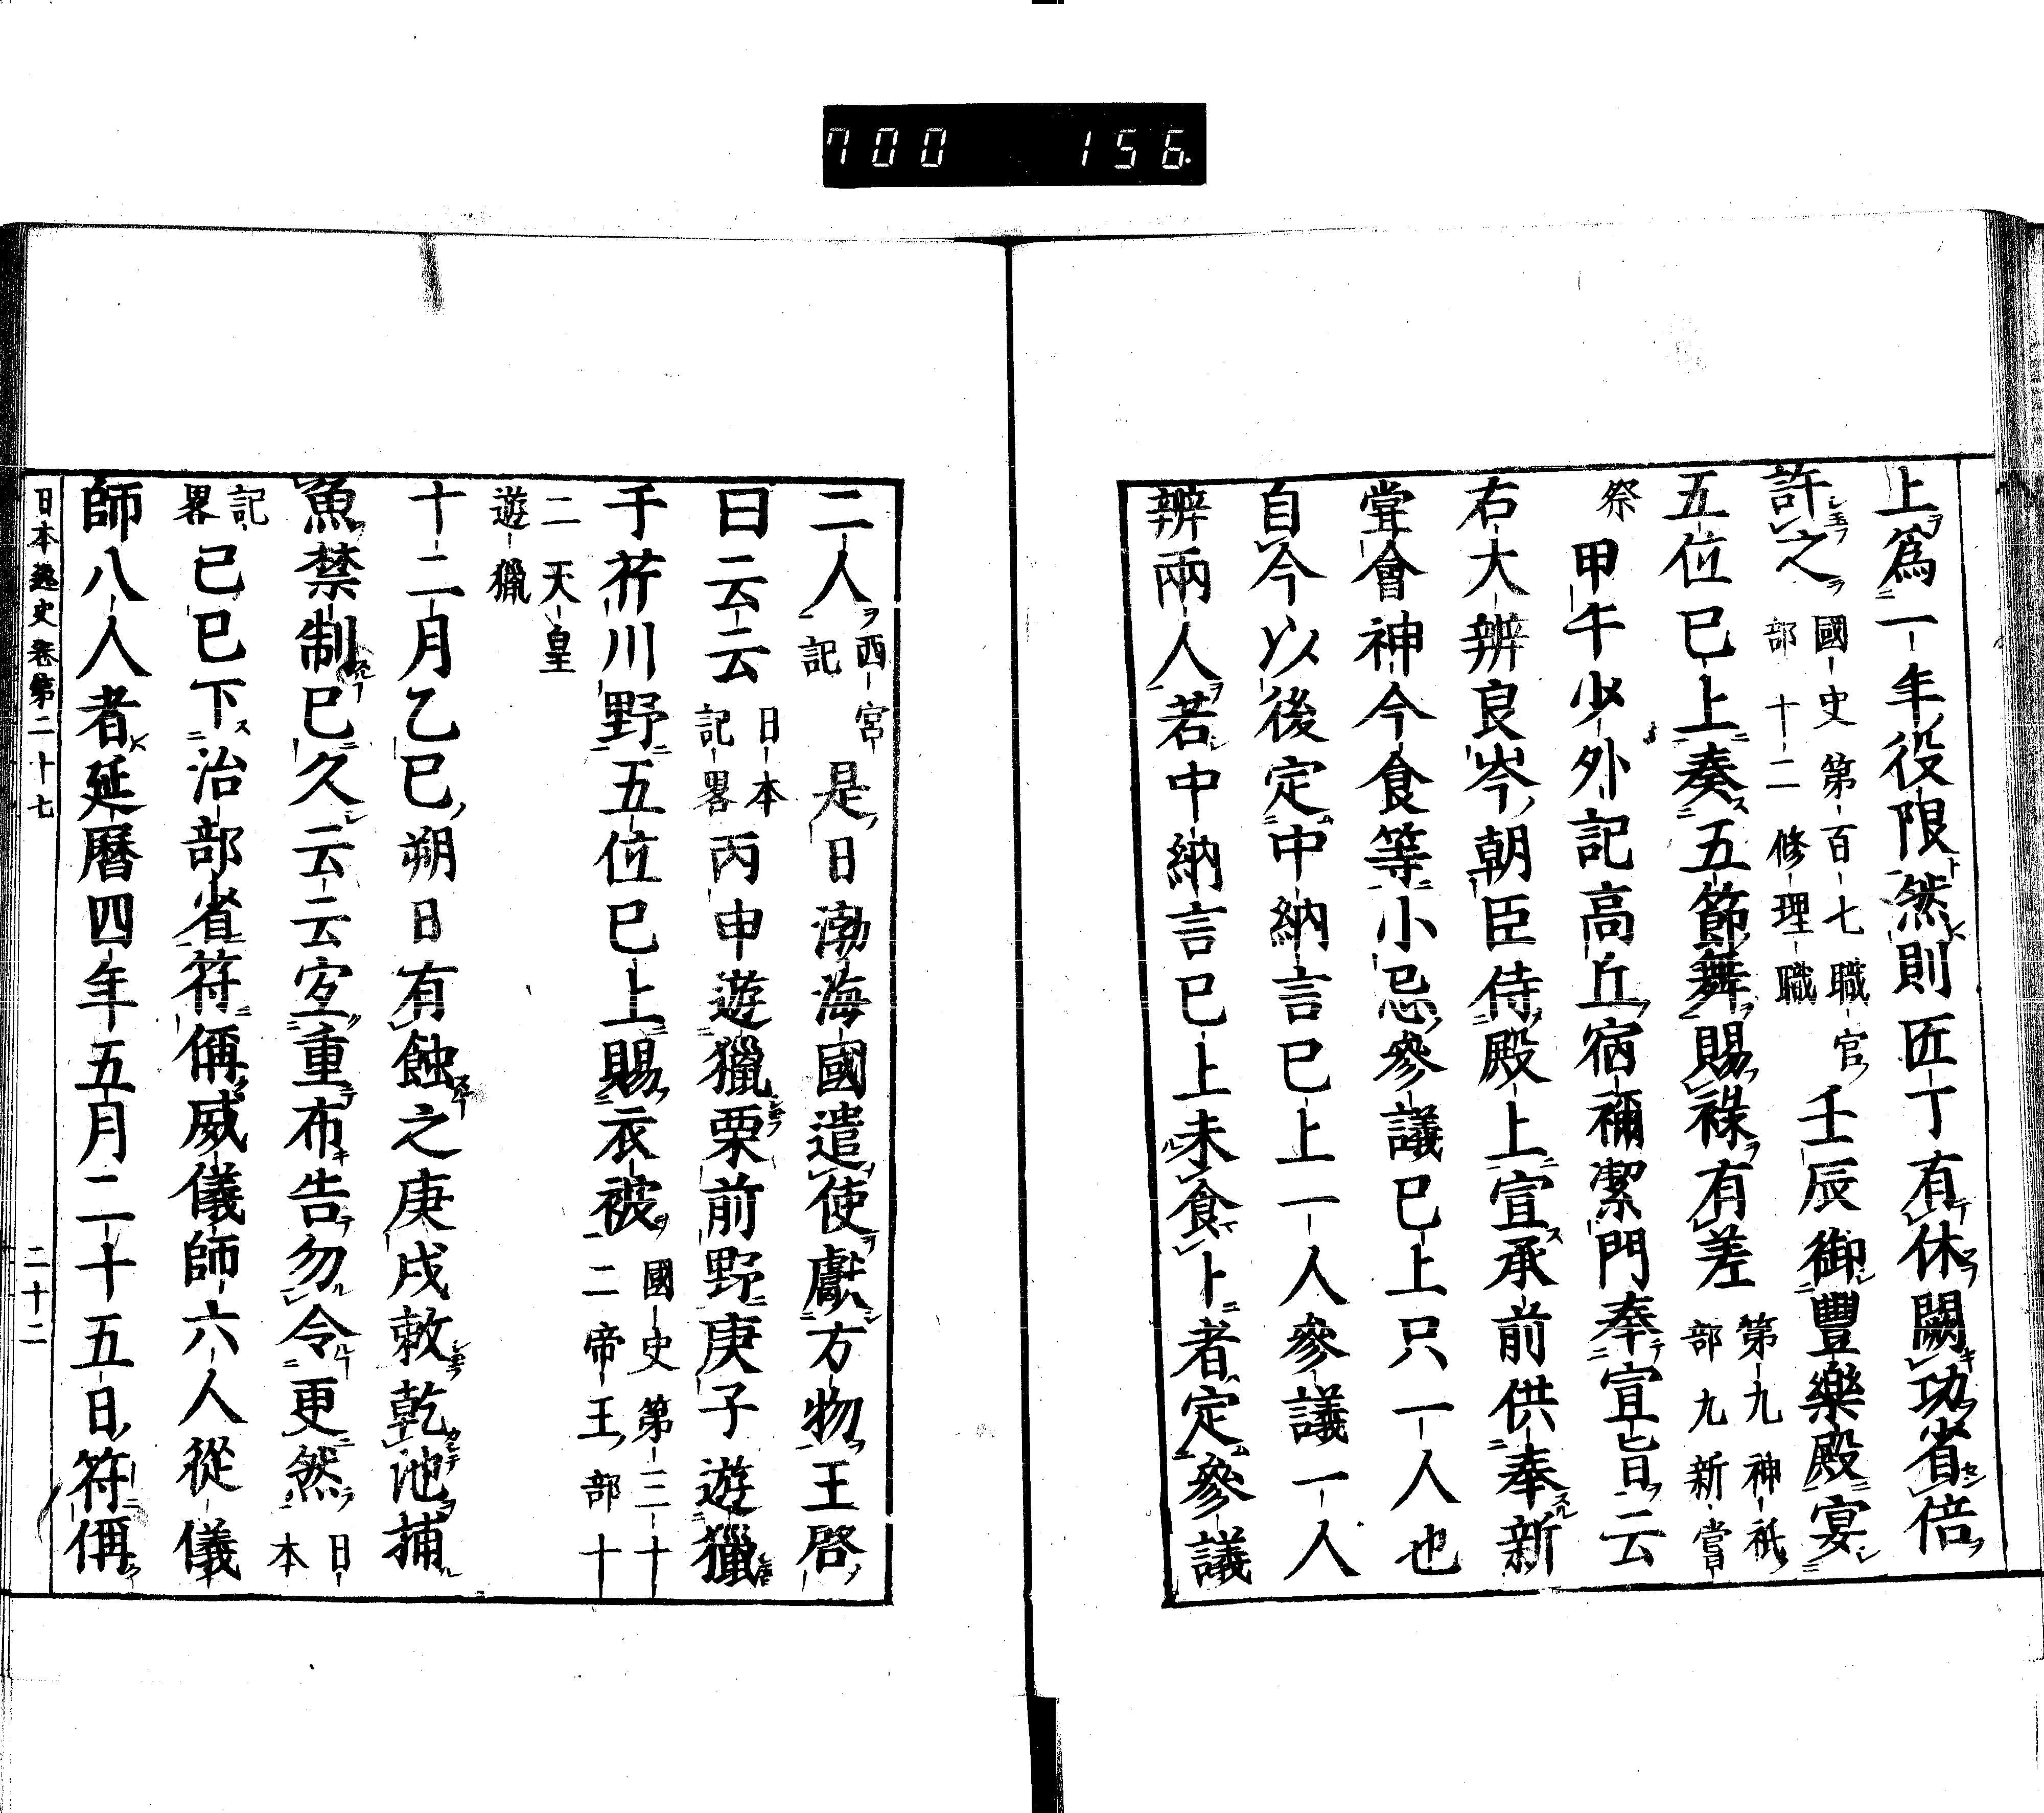 700 156.
上爲一年役限然則匠丁有休闕功省倍
許之國史第百七職官部十二修理職壬辰御豐樂殿宴
五位已上奏五節舞賜祿有差第九神祇部九新嘗
祭甲午少外記高丘宿禰潔門奉宣旨云
右大辨良岑朝臣侍殿上宣承前供奉新
甞會神今食等小忌參議已上只一人也
自今以後定中納言已上一人參議一人
辨兩人若中納言已上未食卜者定參議
二人西宮記是日渤海國遣使獻方物王啓
曰云云日本記畧丙申遊獵栗前野庚子遊獵
于芹川野五位已上賜衣被國史第三十二帝王部十
二天皇遊獵
十二月乙巳朔日有蝕之庚戌敕乾池捕
魚禁制已久云云宜重布告勿令更然日本
記畧己巳下治部省符偁威儀師六人從儀
師八人者延曆四年五月二十五日符偁
日本逸史卷第二十七 二十二